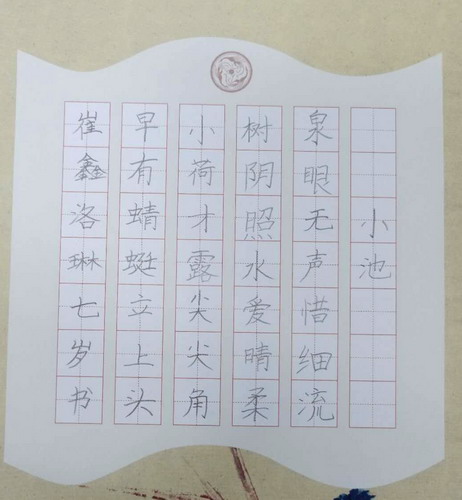 小池
泉眼无声惜细流
树阴照水爱晴柔
小荷才露尖尖角
早有蜻蜓立上头
崔鑫洛琳七岁书